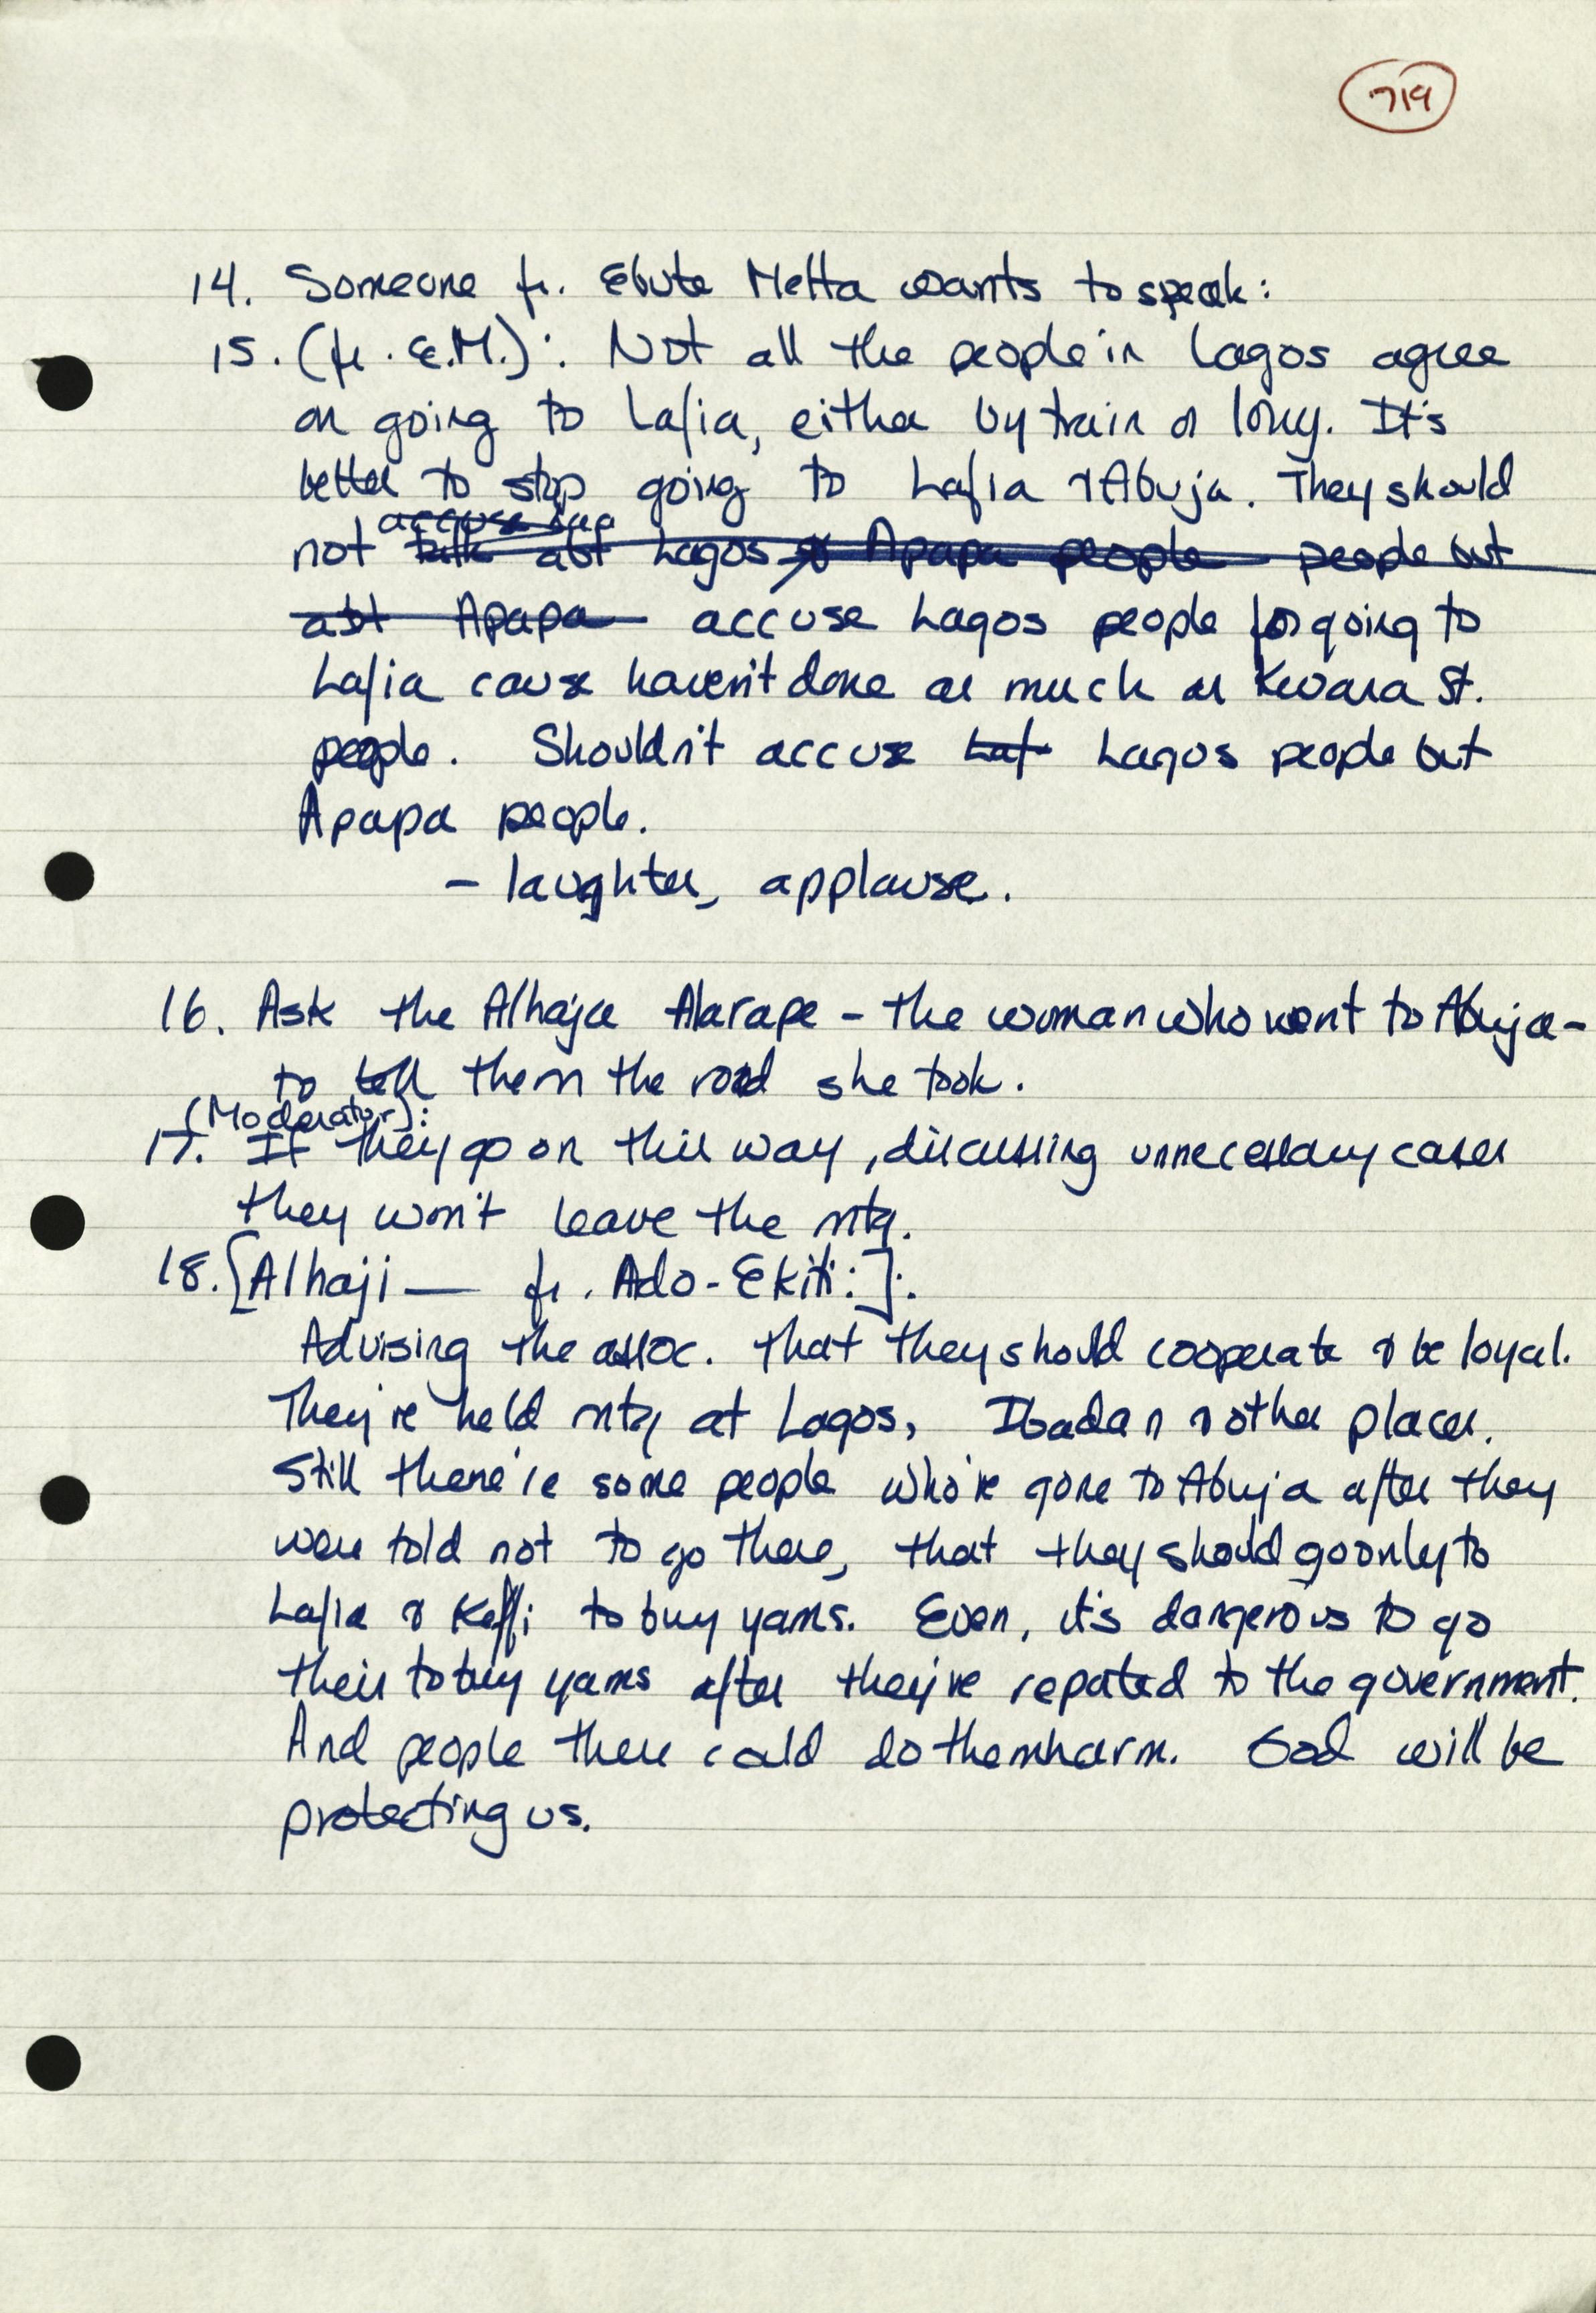 719
14. Someone fr. Ebute Metta wants to speak:
15. (fr. E.M.): Not all the people in Lagos agree
on going to Lafia, either by train or lorry. It's
better to stop going to Lafia & Abuja. They should
accuse
not talk abt Lagos Apapa people people but
abt Apapa accuse Lagos people for going to
Lafia cause haven't done as much as Kwara St.
people. Shouldn't accuse Laf Lagos people but
Apapa people.
- laughter, applause.
16. Ask the Alhaja Alarape - the woman who went to Abuja -
to tell them the road she took.
(Moderator):
17. If they go on this way, discussing unnecessary cases
they won't leave the mtg.
18. [Alhaji — fr. Ado-Ekiti:]:
Advising the assoc. that they should cooperate & be loyal.
They've held mtg at Lagos, Ibadan & other places.
Still there're some people who've gone to Abuja after they
were told not to go there, that they should go only to
Lafia & Keffi to buy yams. Even, it's dangerous to go
their to buy yams after they've repated to the government.
And people there could do them harm. God will be
protecting us.